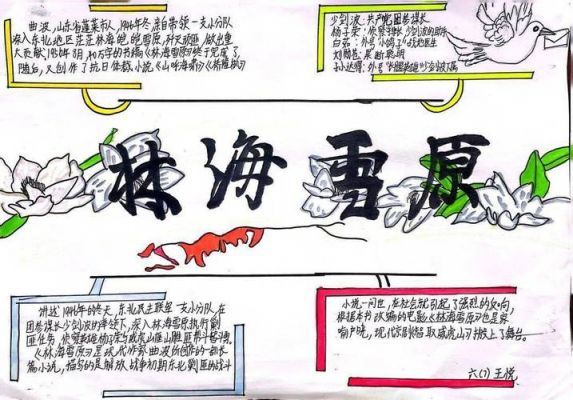 曲波,山东省蓬莱市人,1946年冬,亲自带领一支小分队
深入东北地区茫茫林海皑皑雪原,歼灭顽匪,做出重
大贡献;1956年8月,40万字的书稿《林海雪原》终于完成了,
随后,又创作了抗日体裁小说《山呼海啸》《桥隆飙》
少剑波:共产党团参谋长
杨子荣:侦察排长 少剑波的
白茹:外号"小鸽子" 医生
刘勋苍:果断聪明
孙达得:外号"长腿
林海雪原
讲述1946年的冬天,东北民主联军一支小分队,在
团参谋长少剑波的率领下,深入林海雪原执行剿
匪任务 侦察英雄杨子荣与威虎山座山雕匪帮斗智斗勇。
《林海雪原》是现代作家曲波所创作的一部长
篇小说,描写的是解放战争初期东北剿匪的战斗
小说一问世,在社会就引起了强烈的反响,
根据本书改编的电影《林海雪原》也是家
喻户晓,现代京剧智取威虎山搬上了舞台。
六(7) 王悦